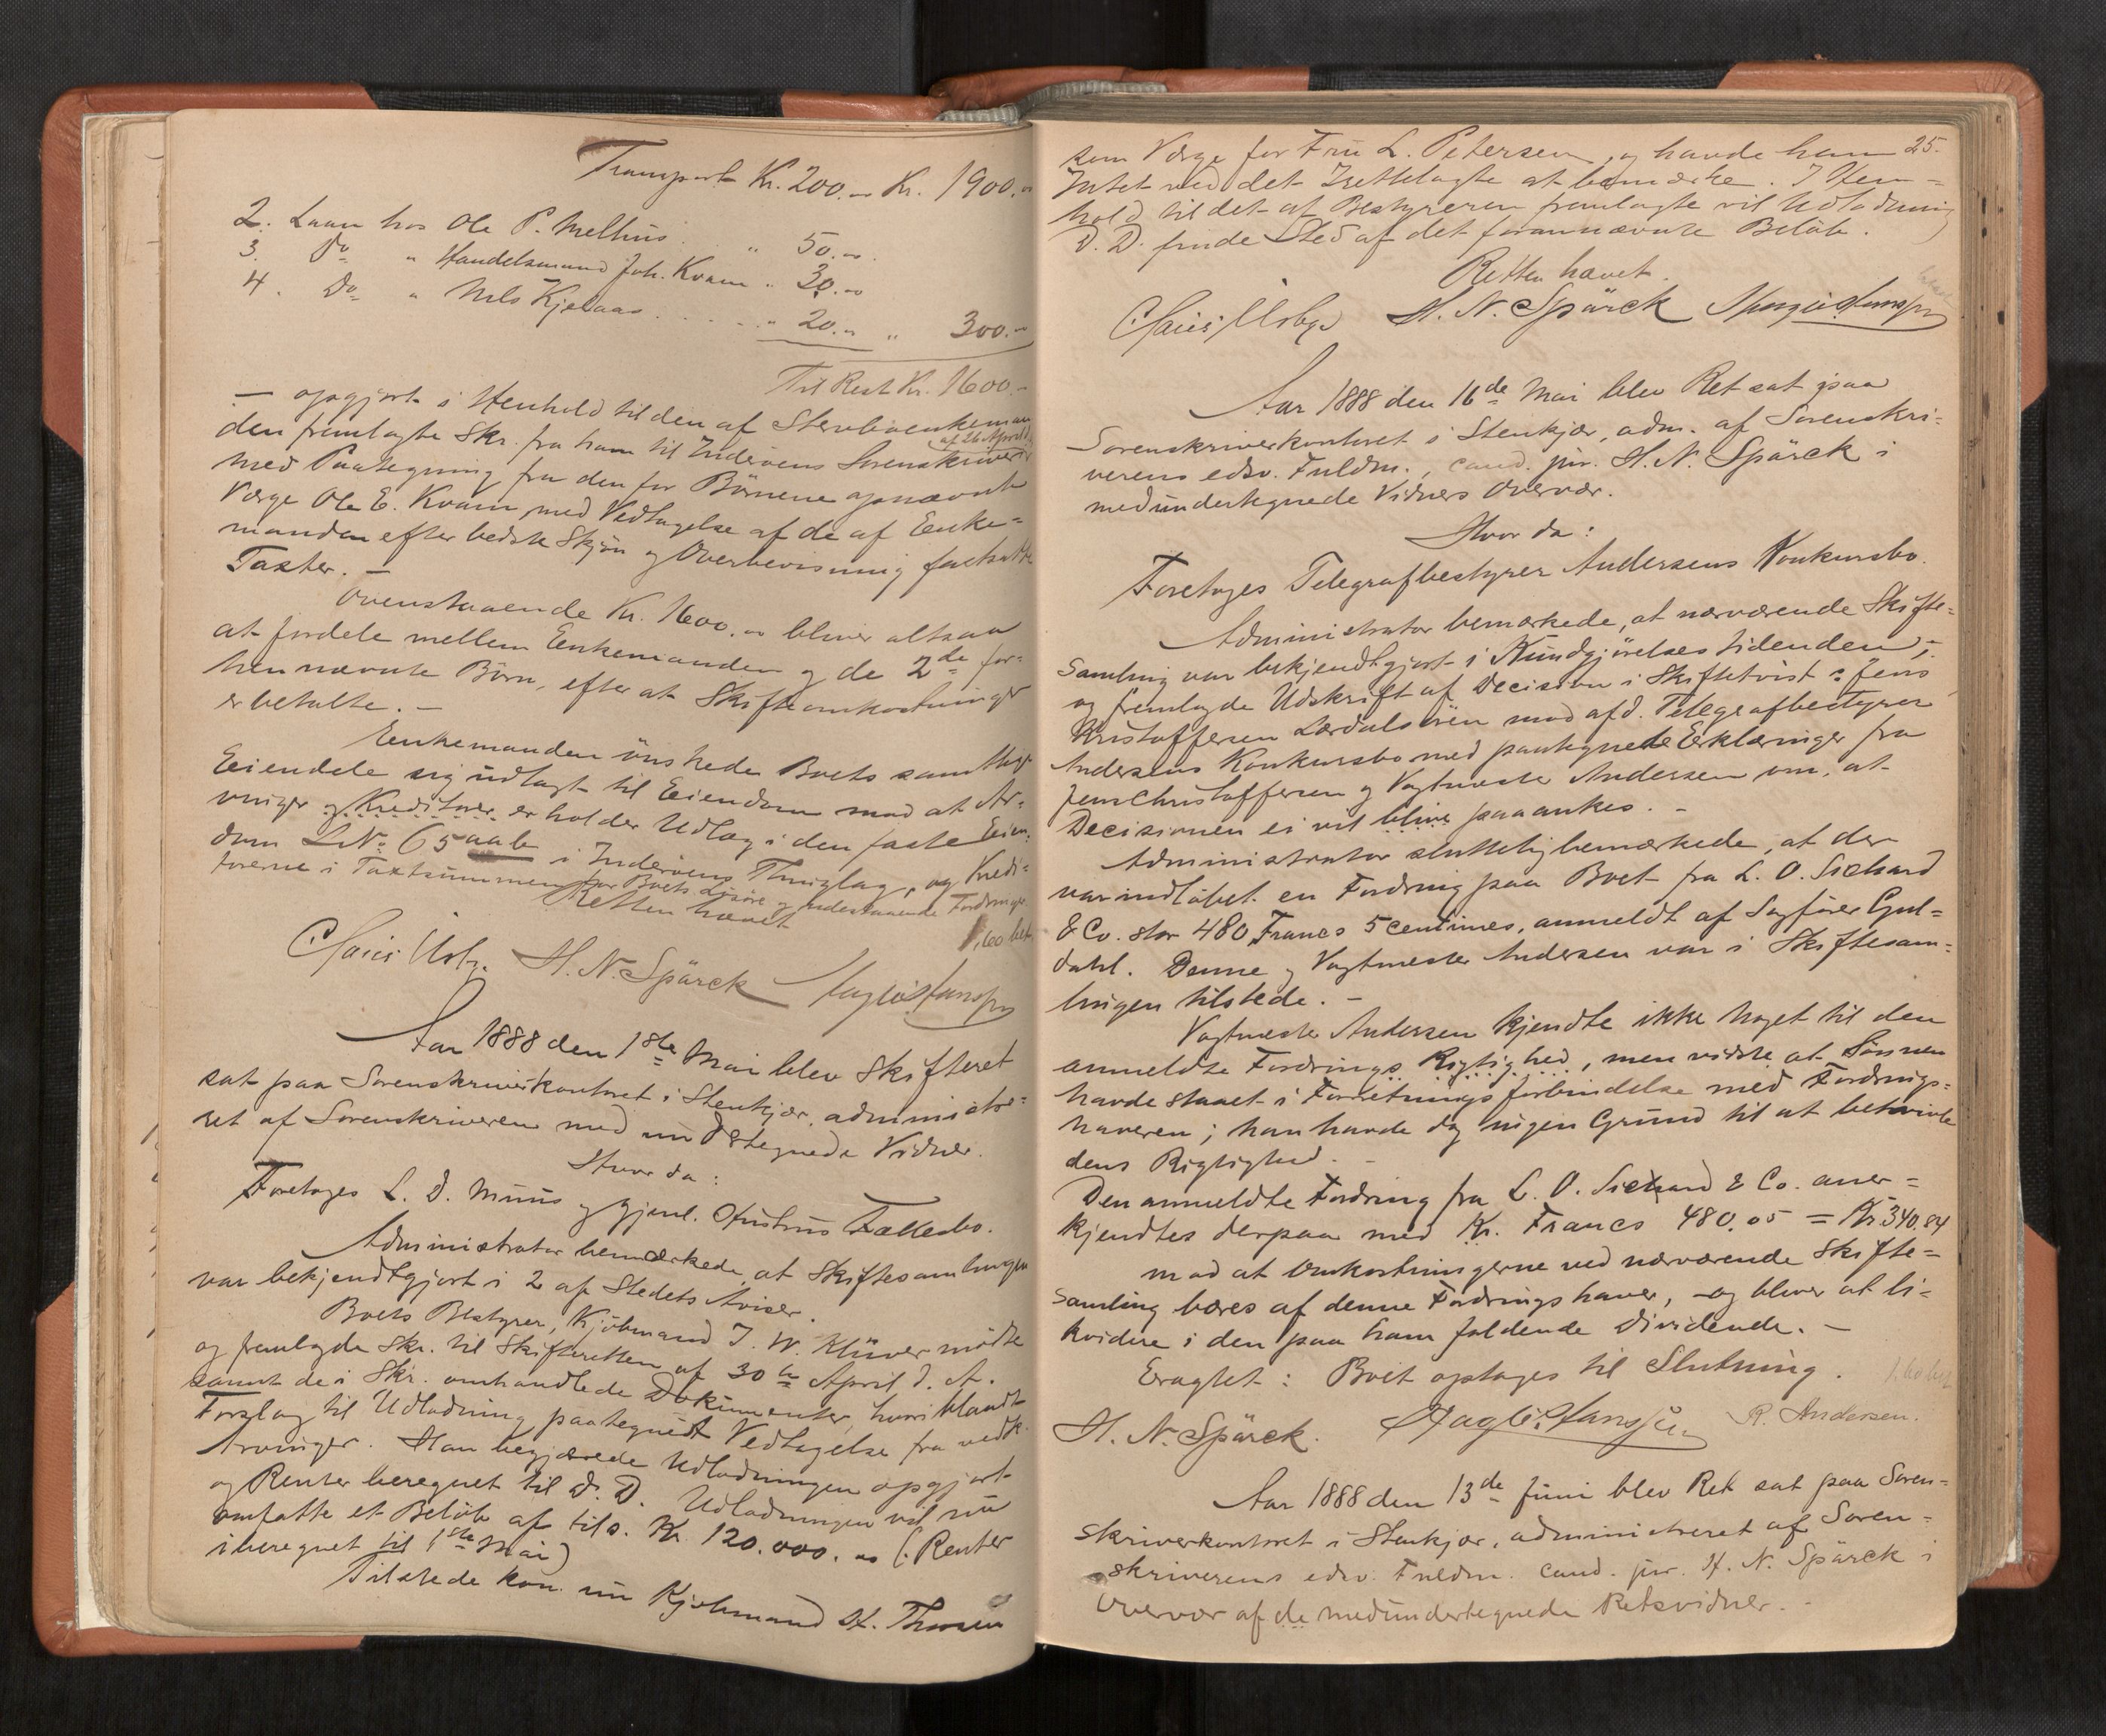 Transport Kr. 200.- Kr. 1900.-
2. Laan hos Ole P. Melhus. " 50.-
3. Do " Handelsmand Joh. Kvam " 30.-
4. Do " Nils Kjelaas . . . . " 20.- " 300.-
Til Rest Kr. 1600.-
- opgjort i Henhold til den af Stervboenkeman
den fremlagte Skr. fra ham til Inderøens Sorenskriver af 26 April
med Paategning fra den for Börnene opnævnte
Værge Ole E. Kvam, med Vedtagelse af de af Enke=
manden efter bedste Skjön og Overbevisning fastsatte
Taxter. -
Ovenstaaende Kr. 1600.- bliver altsaa
at fordele mellem Enkemanden og de 2de for=
hen nævnte Börn, efterat Skifteomkostninger
er betalte. -
Enkemanden önskede Boets samtlige
Eiendele sig udlagt til Eiendom mod at Ar=
vinger og Kreditorer erholder Udlæg i den faste Eien=
dom LNo 65 aab i Inderöens Thinglag, og Kredi=
torerne i Taxtsummen for Boets Lösöre og udestaaende Fordringer.
Retten hævet
1,60 bet.
H. N. Spärck
Aar 1888 den 1ste Mai blev Skifteret
sat paa Sorenskriverkontoret i Stenkjær, administre=
ret af Sorenskriveren med undertegnede Vidner.
Hvor da:
Foretoges L. D. Muus og gjenl. Hustrus Fællesbo.
Administrator bemærkede, at Skiftesamlingen
var bekjendtgjort i 2 af Stedets Aviser.
Boets Bestyrer, Kjöbmand I. W. Klüver mödte
og fremlagde Skr. til Skifteretten af 30te April d. A.
samt de i Skr. omhandlede Dokumenter, hvoriblandt
Forslag til Udlodning paategnet Vedtagelse fra vedk.
Arvinger. Han begjærede Udlodningen opgjort
og Renter beregnet til D. D. Udlodningen vil nu
omfatte et Belöb af tils. Kr. 120.000.- (: Renter
iberegnet til 1ste Mai)
Tilstede kom nu Kjöbmand H.
25.
som Værge for Fru L. Petersen, og havde han
Intet ved det Irettelagte at bemærke. I Hen=
hold til det af Bestyreren fremlagte vil Udlodning
D. D. finde Sted af det forannævnte Belöb.
Retten hævet.
H. N. Spärck
Aar 1888 den 16de Mai blev Ret sat paa
Sorenskriverkontoret i Stenkjær, adm. af Sorenskri=
verens edsv. Fuldm., cand. jur. H. N. Spärck i
medundertegnede Vidners Overvær.
Hvor da:
Foretoges Telegrafbestyrer Andersens Konkursbo.
Administrator bemærkede, at nærværende Skifte=
samling var bekjendtgjort i Kundgjörelsestidenden,
og fremlagde Udskrift af Decision i Skiftetvist: Jens
Kristoffersen Lærdalsören mod afd. Telegrafbestyrer
Andersens Konkursbo med paategnede Erklæringer fra
Jens Christoffersen og Vagtmester Andersen om, at
Decisionen ei vil blive paaanket. -
Administrator sluttelig bemærkede, at der
var indlöbet en Fordring paa Boet fra L. O. Sichard
& Co. stor 480 Francs 5 centimes, anmeldt af Sagförer Gul=
dahl. Denne og Vagtmester Andersen var i Skiftesam=
lingen tilstede. -
Vagtmester Andersen kjendte ikke noget til den
anmeldte Fordrings Rigtighed, men vidste at Sönnen
havde staaet i Forretningsforbindelse med Fordrings=
haveren; han havde dog ingen Grund til at betvivle
dens Rigtighed. -
Den anmeldte Fordring fra L. O. Sichard & Co. aner=
kjendtes derpaa med Kr. Francs 480.05 = Kr. 340.84
mod at Omkostningerne ved nærværende Skifte=
samling bæres af denne Fordringshaver, og bliver at li=
kvidere i den paa ham faldende Dividende. -
Eragtet: Boet optages til Slutning.
1,60 bet
H. N. Spärck. R. Andersen.
Aar 1888 den 13de Juni blev Ret sat paa Soren=
skriverkontoret i Stenkjær, administreret af Soren=
skriverens edsv. Fuldm. cand. jur. H. N. Spärck i
Overvær af de medundertegnede Retsvidner. -